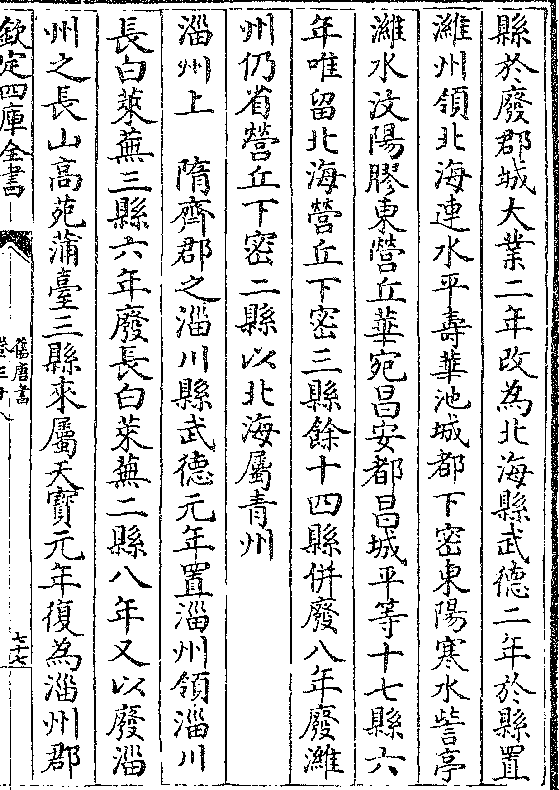 縣於廢郡城大業二年改為北海縣武德二年於縣置
濰州領北海連水平壽華池城都下密東陽寒水訾亭
濰水汶陽膠東營丘華宛昌安都昌城平等十七縣六
年唯留北海營丘下密三縣餘十四縣併廢八年廢濰
州仍省營丘下密二縣以北海屬青州
淄州上　隋齊郡之淄川縣武德元年置淄州領淄川
長白萊蕪三縣六年廢長白萊蕪二縣八年又以廢淄
州之長山高苑蒲臺三縣來屬天寶元年復為淄州郡
欽定四庫全書
舊唐書
七十七